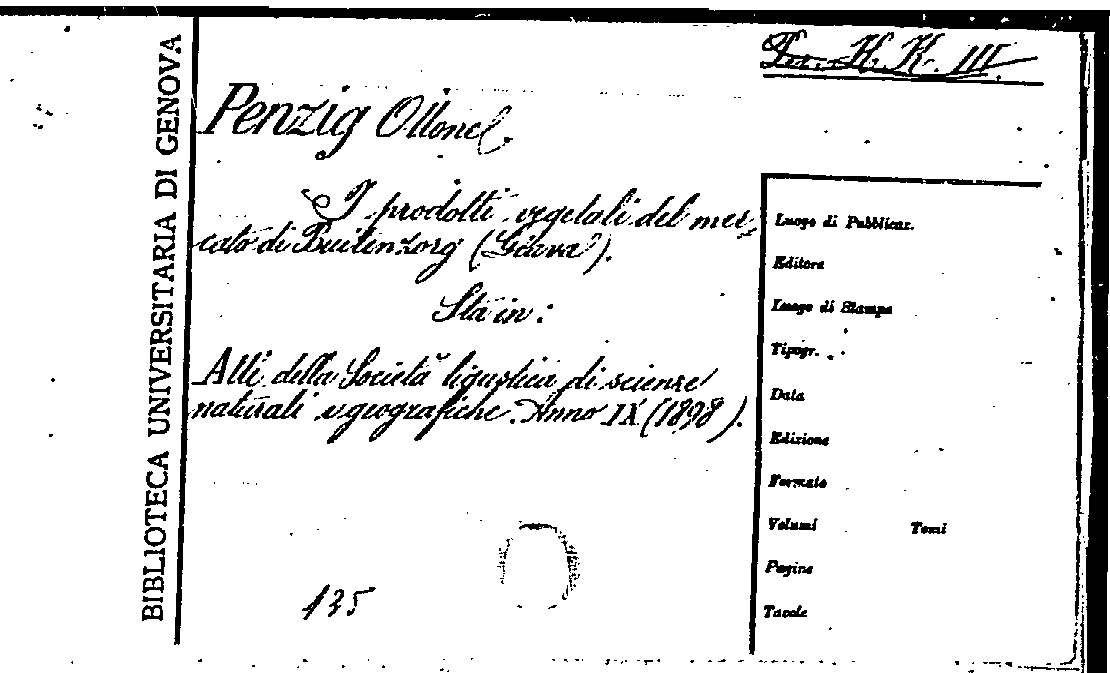 BIBLIOTECA UNIVERSITARIA DI GENOVA
H. K. III.
Penzig Ottone.
I prodotti vegetali del mer-
cato di Buitenzorg (Giava).
Sta in:
Atti della Società ligustica di scienze
naturali e geografiche. Anno IX (1898).
135
Luogo di Pubblicaz.
Editore
Luogo di Stampa
Tipogr.
Data
Edizione
Formato
Volumi Tomi
Pagine
Tavole